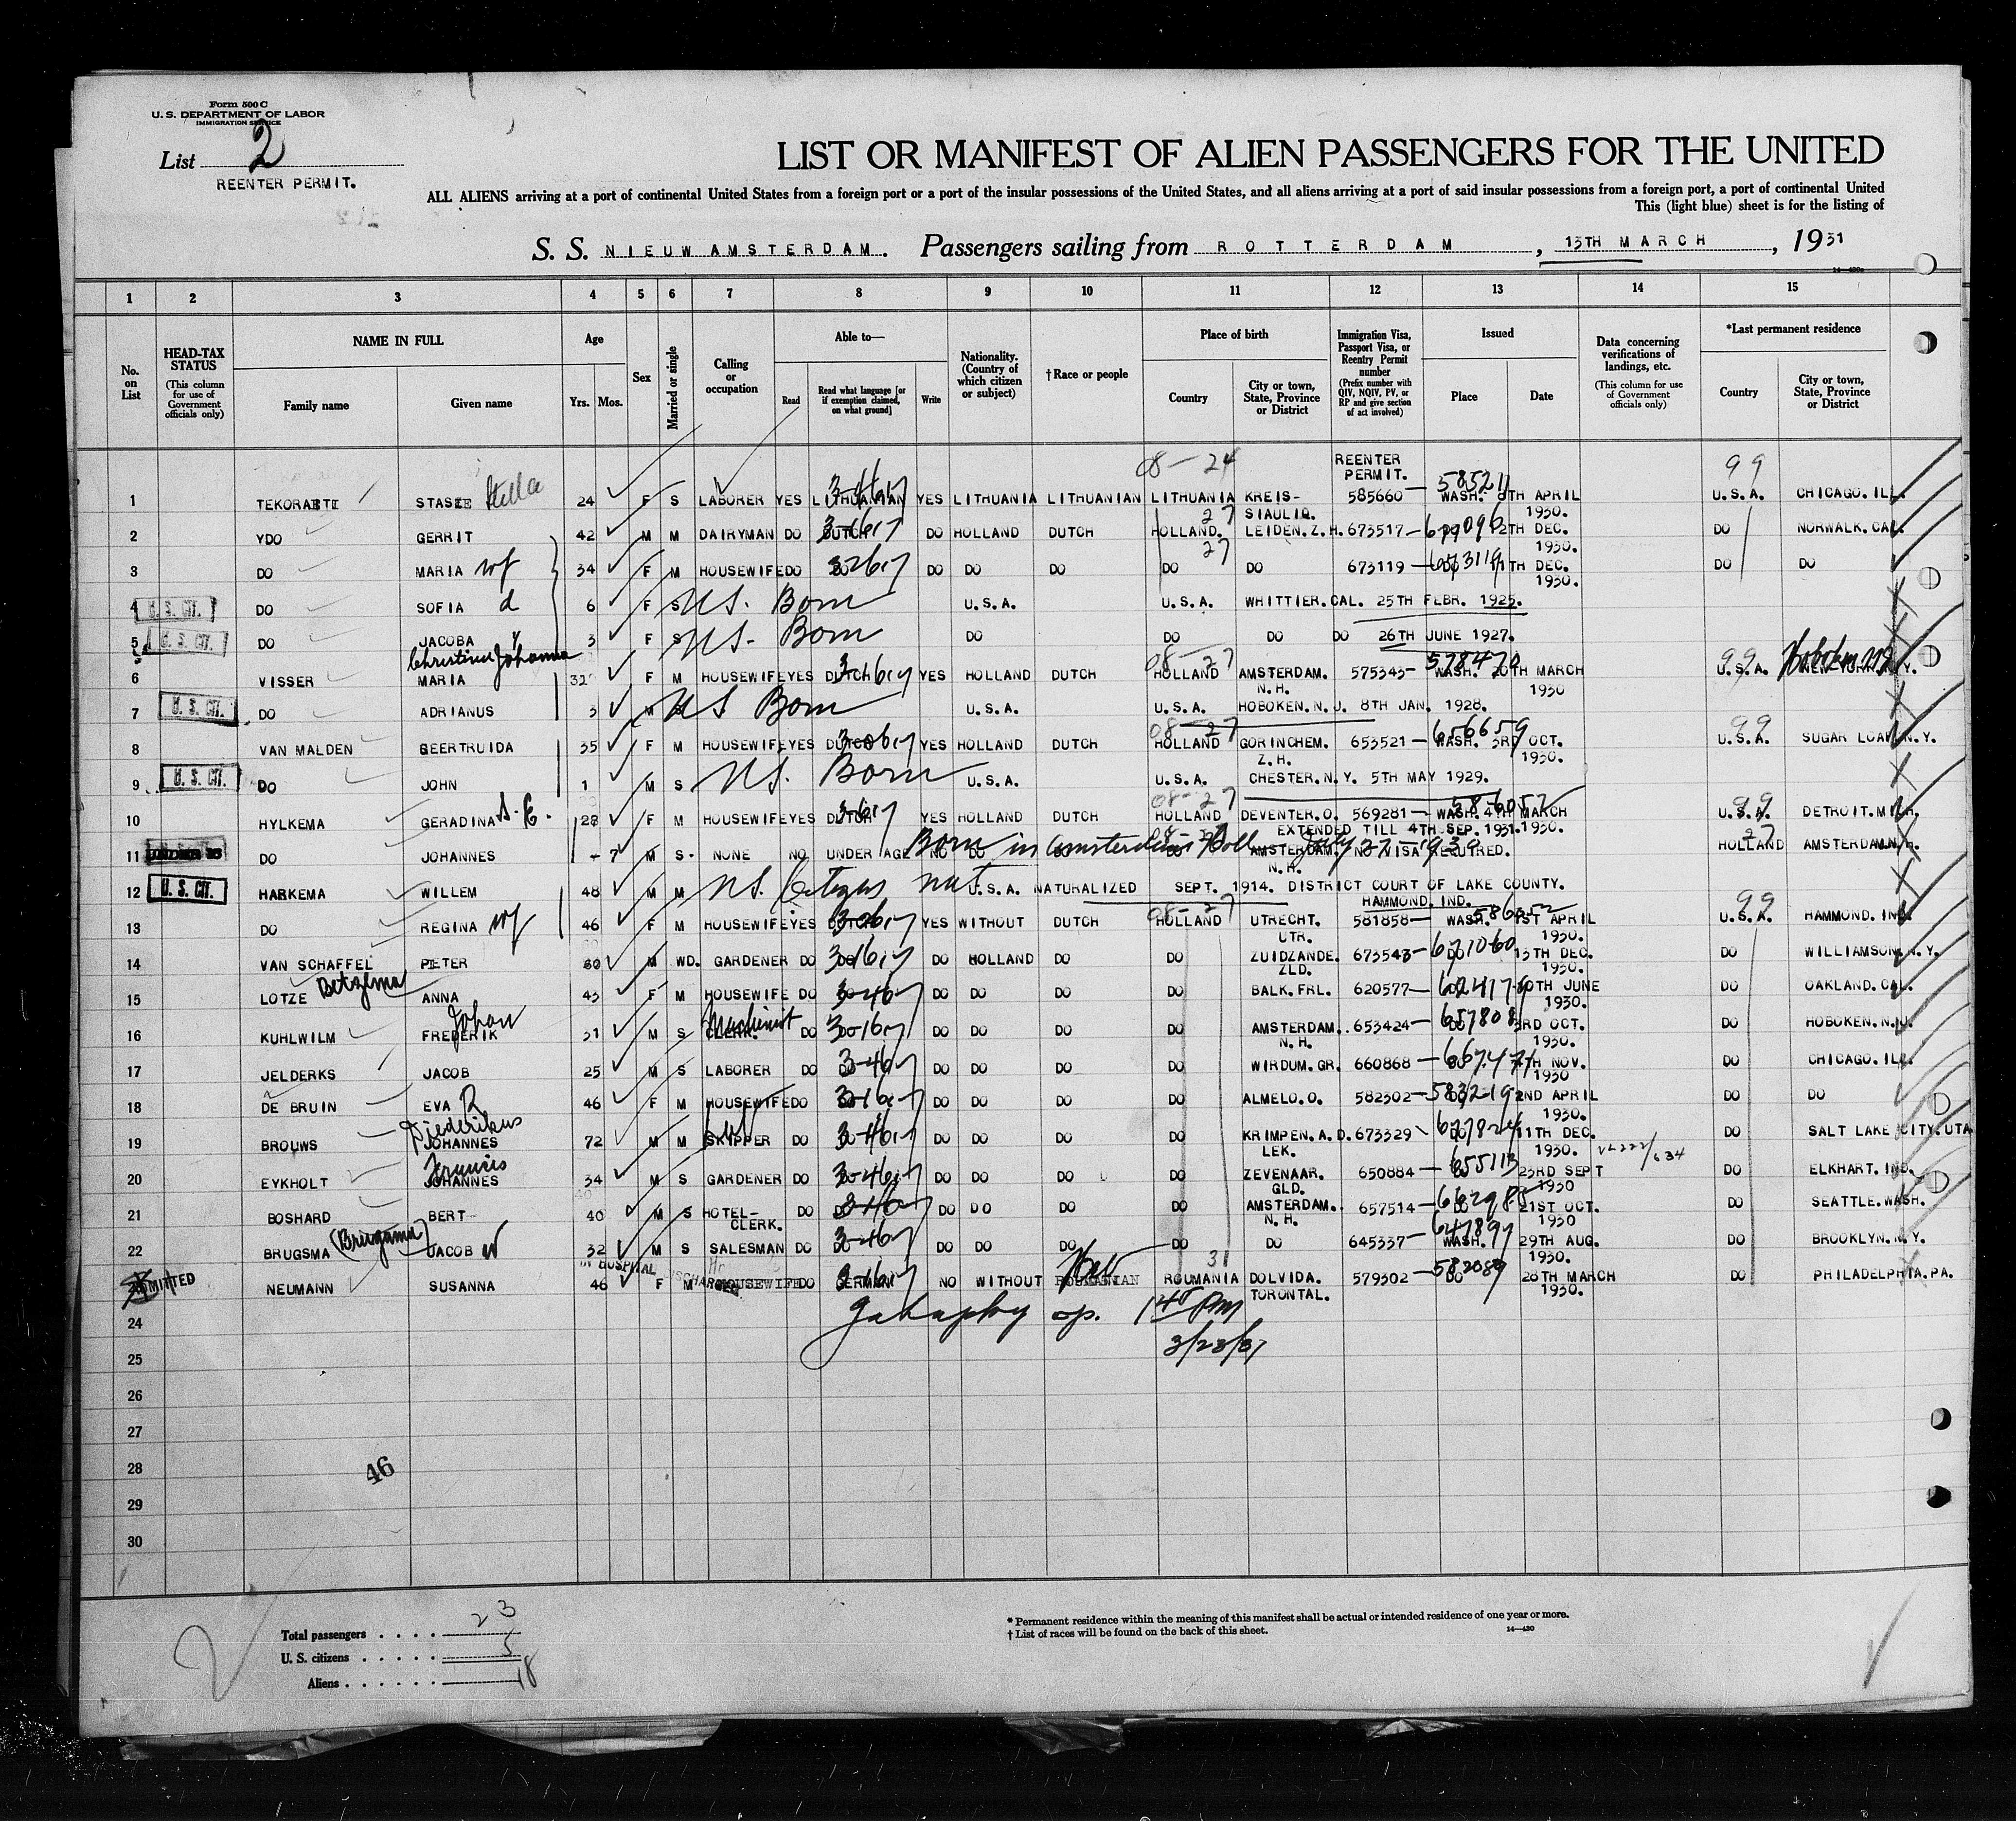 Form 500 C
U. S. DEPARTMENT OF LABOR
IMMIGRATION SERVICE
List 2
REENTER PERMIT.
LIST OR MANIFEST OF ALIEN PASSENGERS FOR THE UNITED
ALL ALIENS arriving at a port of continental United States from a foreign port or a port of the insular possessions of the United States, and all aliens arriving at a port of said insular possessions from a foreign port, a port of continental United
This (light blue) sheet is for the listing of
S. S. NIEUW AMSTERDAM. Passengers sailing from ROTTERDAM, 13TH MARCH, 1931
1 2 3 4 5 6 7 8 9 10 11 12 13 14 15
No. on List
HEAD-TAX STATUS (This column for use of Government officials only)
NAME IN FULL Family name Given name
Age Yrs. Mos.
Sex
Married or single
Calling or occupation
Able to— Read Read what language [or if exemption claimed, on what ground] Write
Nationality. (Country of which citizen or subject)
† Race or people
Place of birth Country City or town, State, Province or District
Immigration Visa, Passport Visa, or Reentry Permit number (Prefix number with QIV, NQIV, PV, or RP and give section of act involved)
Issued Place Date
Data concerning verifications of landings, etc. (This column for use of Government officials only)
*Last permanent residence Country City or town, State, Province or District
08-24 REENTER PERMIT. 99
1 STASIE Stella 24 F S LABORER YES LITHUANIAN YES LITHUANIA LITHUANIAN LITHUANIA KREIS- SIAULIQ. 585660 585211 WASH. 8TH APRIL 1930. U.S.A. CHICAGO. ILL.
2 YDO GERRIT 42 M M DAIRYMAN DO DUTCH DO HOLLAND DUTCH HOLLAND. 27 LEIDEN. Z. H. 673517 12TH DEC. 1930. DO NORWALK. CAL.
3 DO MARIA wf 34 F M HOUSEWIFE DO DO DO DO DO DO 27 DO 673119 11TH DEC. 1930. DO DO
4 U. S. CIT. DO SOFIA d 6 F S US. Born U.S.A. U.S.A. WHITTIER. CAL. 25TH FEBR. 1925.
5 U. S. CIT. DO JACOBA 3 F S US- Born DO DO DO DO 26TH JUNE 1927.
Christine Johanna
6 VISSER MARIA 32 F M HOUSEWIFE YES DUTCH YES HOLLAND DUTCH HOLLAND 08-27 AMSTERDAM. N. H. 575343 578470 WASH. 20TH MARCH 1930 U.S.A. 99 NEW YORK. N. Y.
7 U. S. CIT. DO ADRIANUS 3 M S US Born U.S.A. U.S.A. HOBOKEN. N. J. 8TH JAN. 1928.
8 VAN MALDEN GEERTRUIDA 35 F M HOUSEWIFE YES DUTCH YES HOLLAND DUTCH HOLLAND 08-27 GORINCHEM. Z. H. 653521 656659 WASH. 3RD OCT. 1930. U.S.A. 99 SUGAR LOAF N. Y.
9 U. S. CIT. DO JOHN 1 M S US. Born U.S.A. U.S.A. CHESTER. N. Y. 5TH MAY 1929.
10 HYLKEMA GERADINA 28 F M HOUSEWIFE YES DUTCH YES HOLLAND DUTCH HOLLAND 08-27 DEVENTER. O. 569281 WASH. 4TH MARCH 1930. U.S.A. 99 DETROIT. MICH.
EXTENDED TILL 4TH SEP. 1931.
11 DO JOHANNES - 7 M S- NONE NO UNDER AGE NO DO DO DO AMSTERDAM. N. H. NO VISA REQUIRED. HOLLAND 27 AMSTERDAM. N. H.
Born in Amsterdam Holl July 27-1930
12 U. S. CIT. HARKEMA WILLEM 48 M M US. Citizen nat U.S.A. NATURALIZED SEPT. 1914. DISTRICT COURT OF LAKE COUNTY. HAMMOND. IND.
13 DO REGINA wf 46 F M HOUSEWIFE YES DUTCH YES WITHOUT DUTCH HOLLAND 08-27 UTRECHT. UTR. 581858 WASH. 1ST APRIL 1930. U.S.A. 99 HAMMOND. IND.
14 VAN SCHAFFEL PIETER 60 M WD. GARDENER DO DO DO HOLLAND DO DO ZUIDZANDE. ZLD. 673543 671060 DO 13TH DEC. 1930. DO WILLIAMSON. N. Y.
15 LOTZE Betzema ANNA 43 F M HOUSEWIFE DO DO DO DO DO DO BALK. FRL. 620577 JUNE 1930. DO OAKLAND. CAL.
16 KUHLWILM FREDERIK Johan 31 M S CLERK. Machinist DO DO DO DO DO DO AMSTERDAM. N. H. 653424 657808 3RD OCT. 1930. DO HOBOKEN. N. J.
17 JELDERKS JACOB 25 M S LABORER DO DO DO DO DO DO WIRDUM. GR. 660868 NOV. 1930 DO CHICAGO. ILL.
18 DE BRUIN EVA R 46 F M HOUSEWIFE DO DO DO DO DO DO ALMELO. O. 582302 583219 2ND APRIL 1930. DO DO
19 BROUWS JOHANNES Diederikus 72 M M SKIPPER DO DO DO DO DO DO KRIMPEN. A. D. LEK. 673329 11TH DEC. 1930. DO SALT LAKE CITY. UTA
20 EYKHOLT JOHANNES Francis 34 M S GARDENER DO DO DO DO DO DO ZEVENAAR. GLD. 650884 655113 23RD SEPT 1930 DO ELKHART. IND.
21 BOSHARD BERT 40 M S HOTEL- CLERK. DO DO DO DO DO DO AMSTERDAM. N. H. 657514 21ST OCT. 1930 DO SEATTLE. WASH.
22 BRUGSMA (Brugama) JACOB W 32 M S SALESMAN DO DO DO DO DO DO DO 645337 647897 WASH. 29TH AUG. 1930. DO BROOKLYN. N. Y.
IN HOSPITAL
ADMITTED NEUMANN SUSANNA 46 F M HOUSEWIFE DO GERMAN NO WITHOUT ROUMANIAN ROUMANIA 31 DOLVIDA. TORONTAL. 579302 582089 DO 28TH MARCH 1930. DO PHILADELPHIA. PA.
24 op. 1 45 PM
25 3/23/31
26
27
28 46
29
30
Total passengers . . . . 23
U. S. citizens . . . . . 5
Aliens . . . . . . 18
* Permanent residence within the meaning of this manifest shall be actual or intended residence of one year or more.
† List of races will be found on the back of this sheet.
14—430